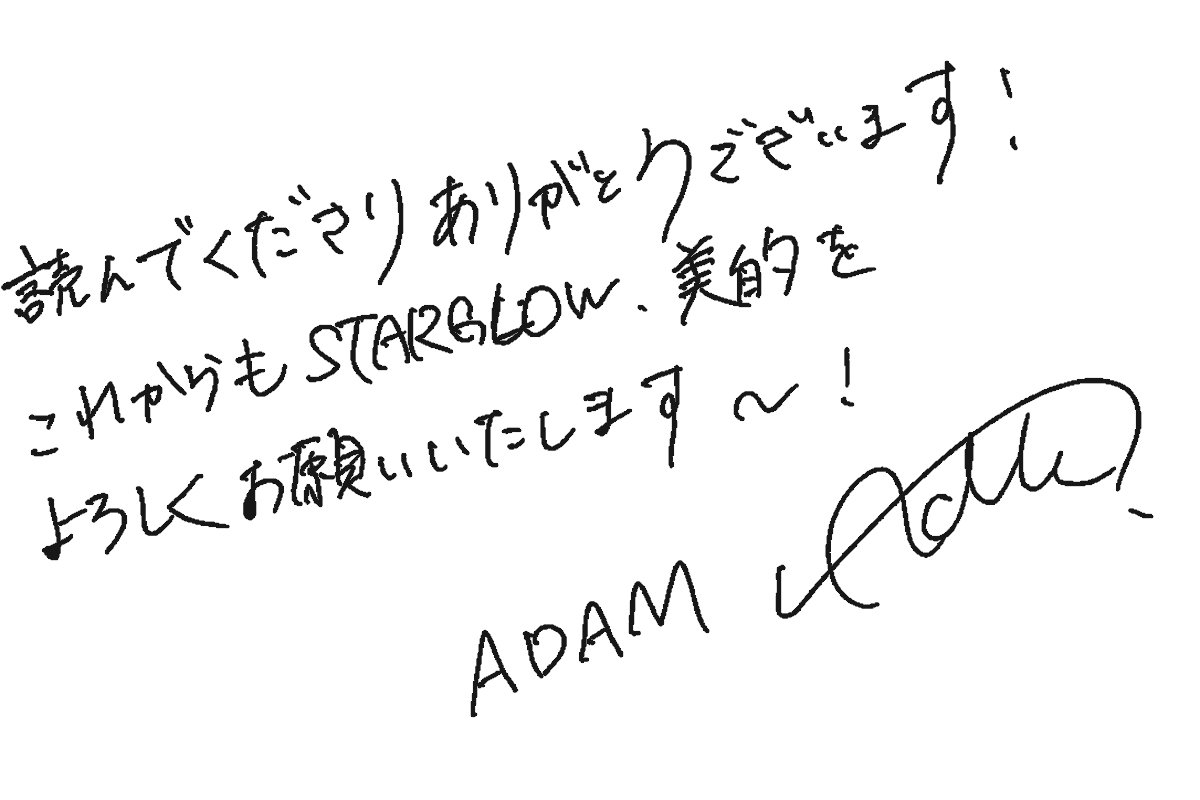 読んでくださりありがとうございます!
これからもSTARGLOW、美的を
よろしくお願いいたします〜!
ADAM